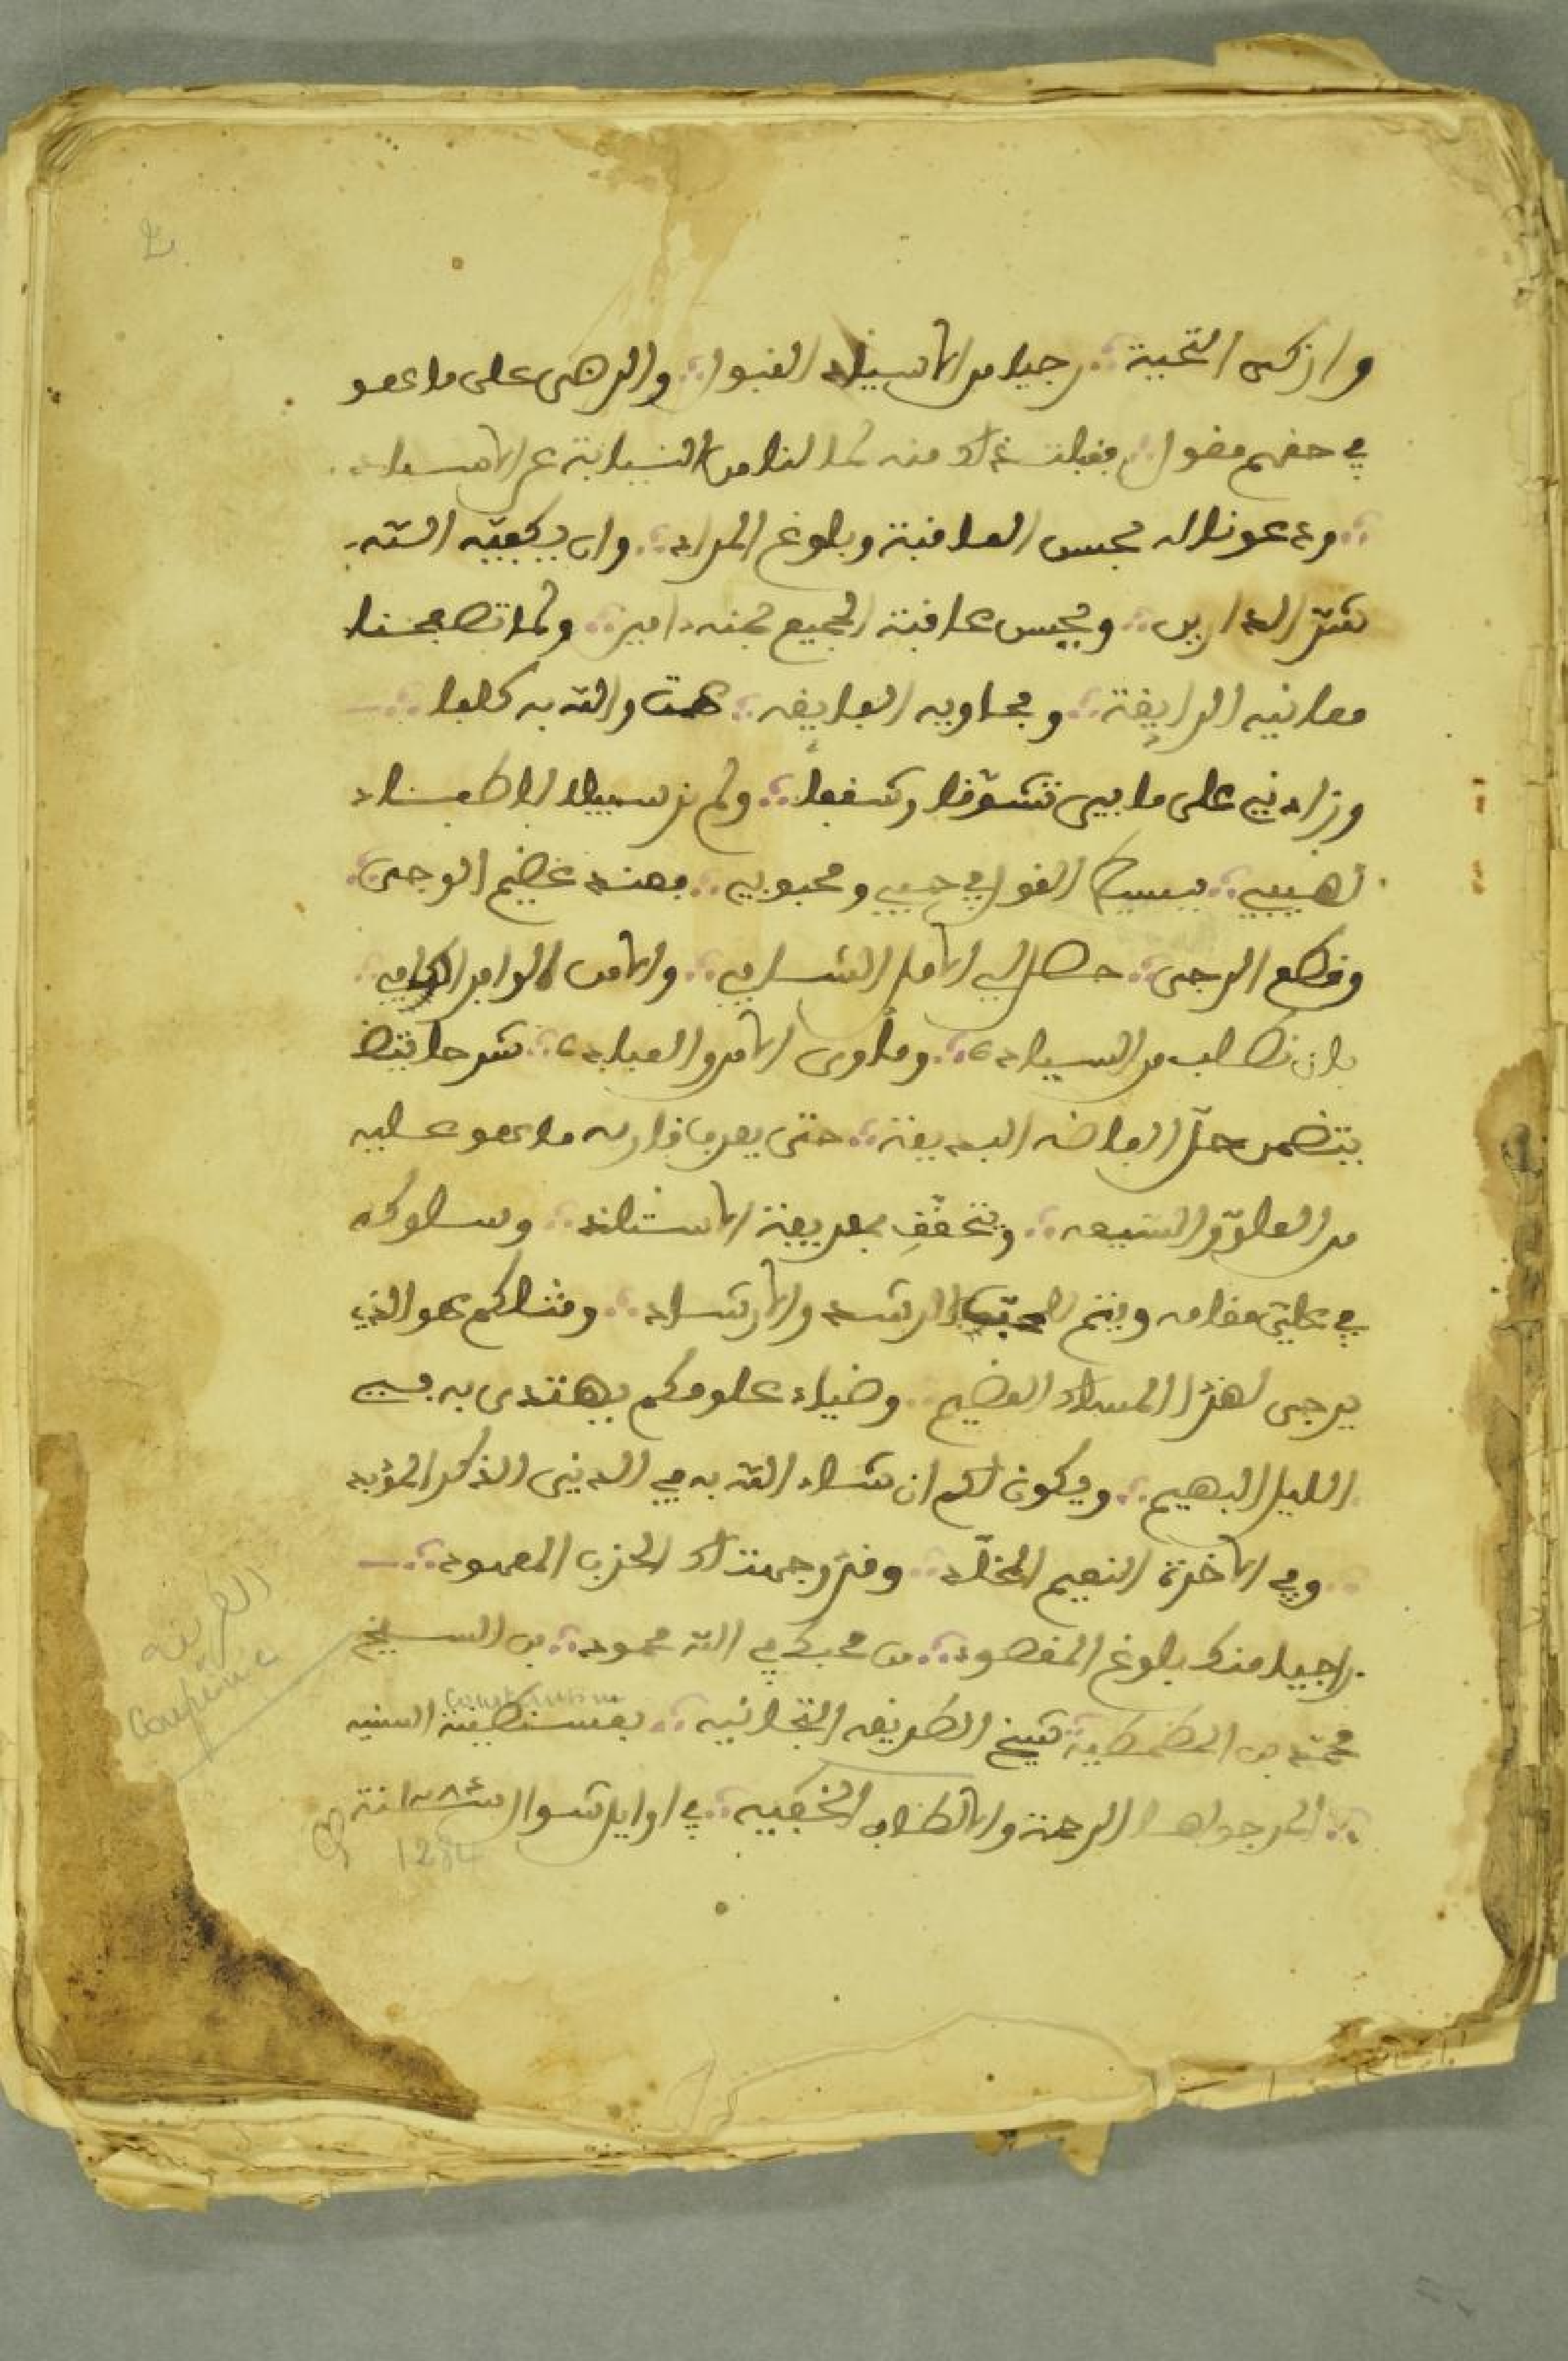 وازكى التحية رجيا من الاسياد القبول والرضى على ما هو
في حقهم مقول فقبلت ذلك منه لما لنا من النيابة عن الاسياد
ودعونا له بحسن العافية وبلوغ المراد وان يكفيه الله
شر الدارين ويحسن عاقبة الجميع بمنه امين ولما تصفحنا
معانيه الرايقة ومحاويه الفايقه همت والله به كلفا
وزادني على ما بي تشوقا وشغفا ولم نر سبيلا لاطفاء
لهيبي بسياح القول في حبيبي ومحبوبي فعند عظيم الوجى
وقطع الرجى حصل لي الامل السامي والامن الوافر النامي
بان نطلب من السيادة ومأوى الامن والعبادة شرحا يتض
يتضمن حل الفاضه البديعة حتى يعرف قاريه ما هو عليه
من العلو والتبيعه ويتحقق بعريقة الاستاذ وسلوكه
في علي مقامه ويتم الرشد والارشاد ومثلكم هو الذي
يرجى لهذا المسلك العظيم وضياء علومكم يهتدى به في
الليل البهيم ويكون لكم ان شاء الله به في الدنيى الذكر المؤبد
وفي الاخرة النعيم المخلد وقد وجهت لك الحزب المعهود
راجيا منك بلوغ المقصود من محبك في الله محمود بن الشيخ
محمد بن المطمطية شيخ الطريقه التجانيه بقسنطينة السنيه
Constantine
المرجو لها الرحمة والالطاف الخفيه في اوايل شوال سنة ١٢٨٤
1284